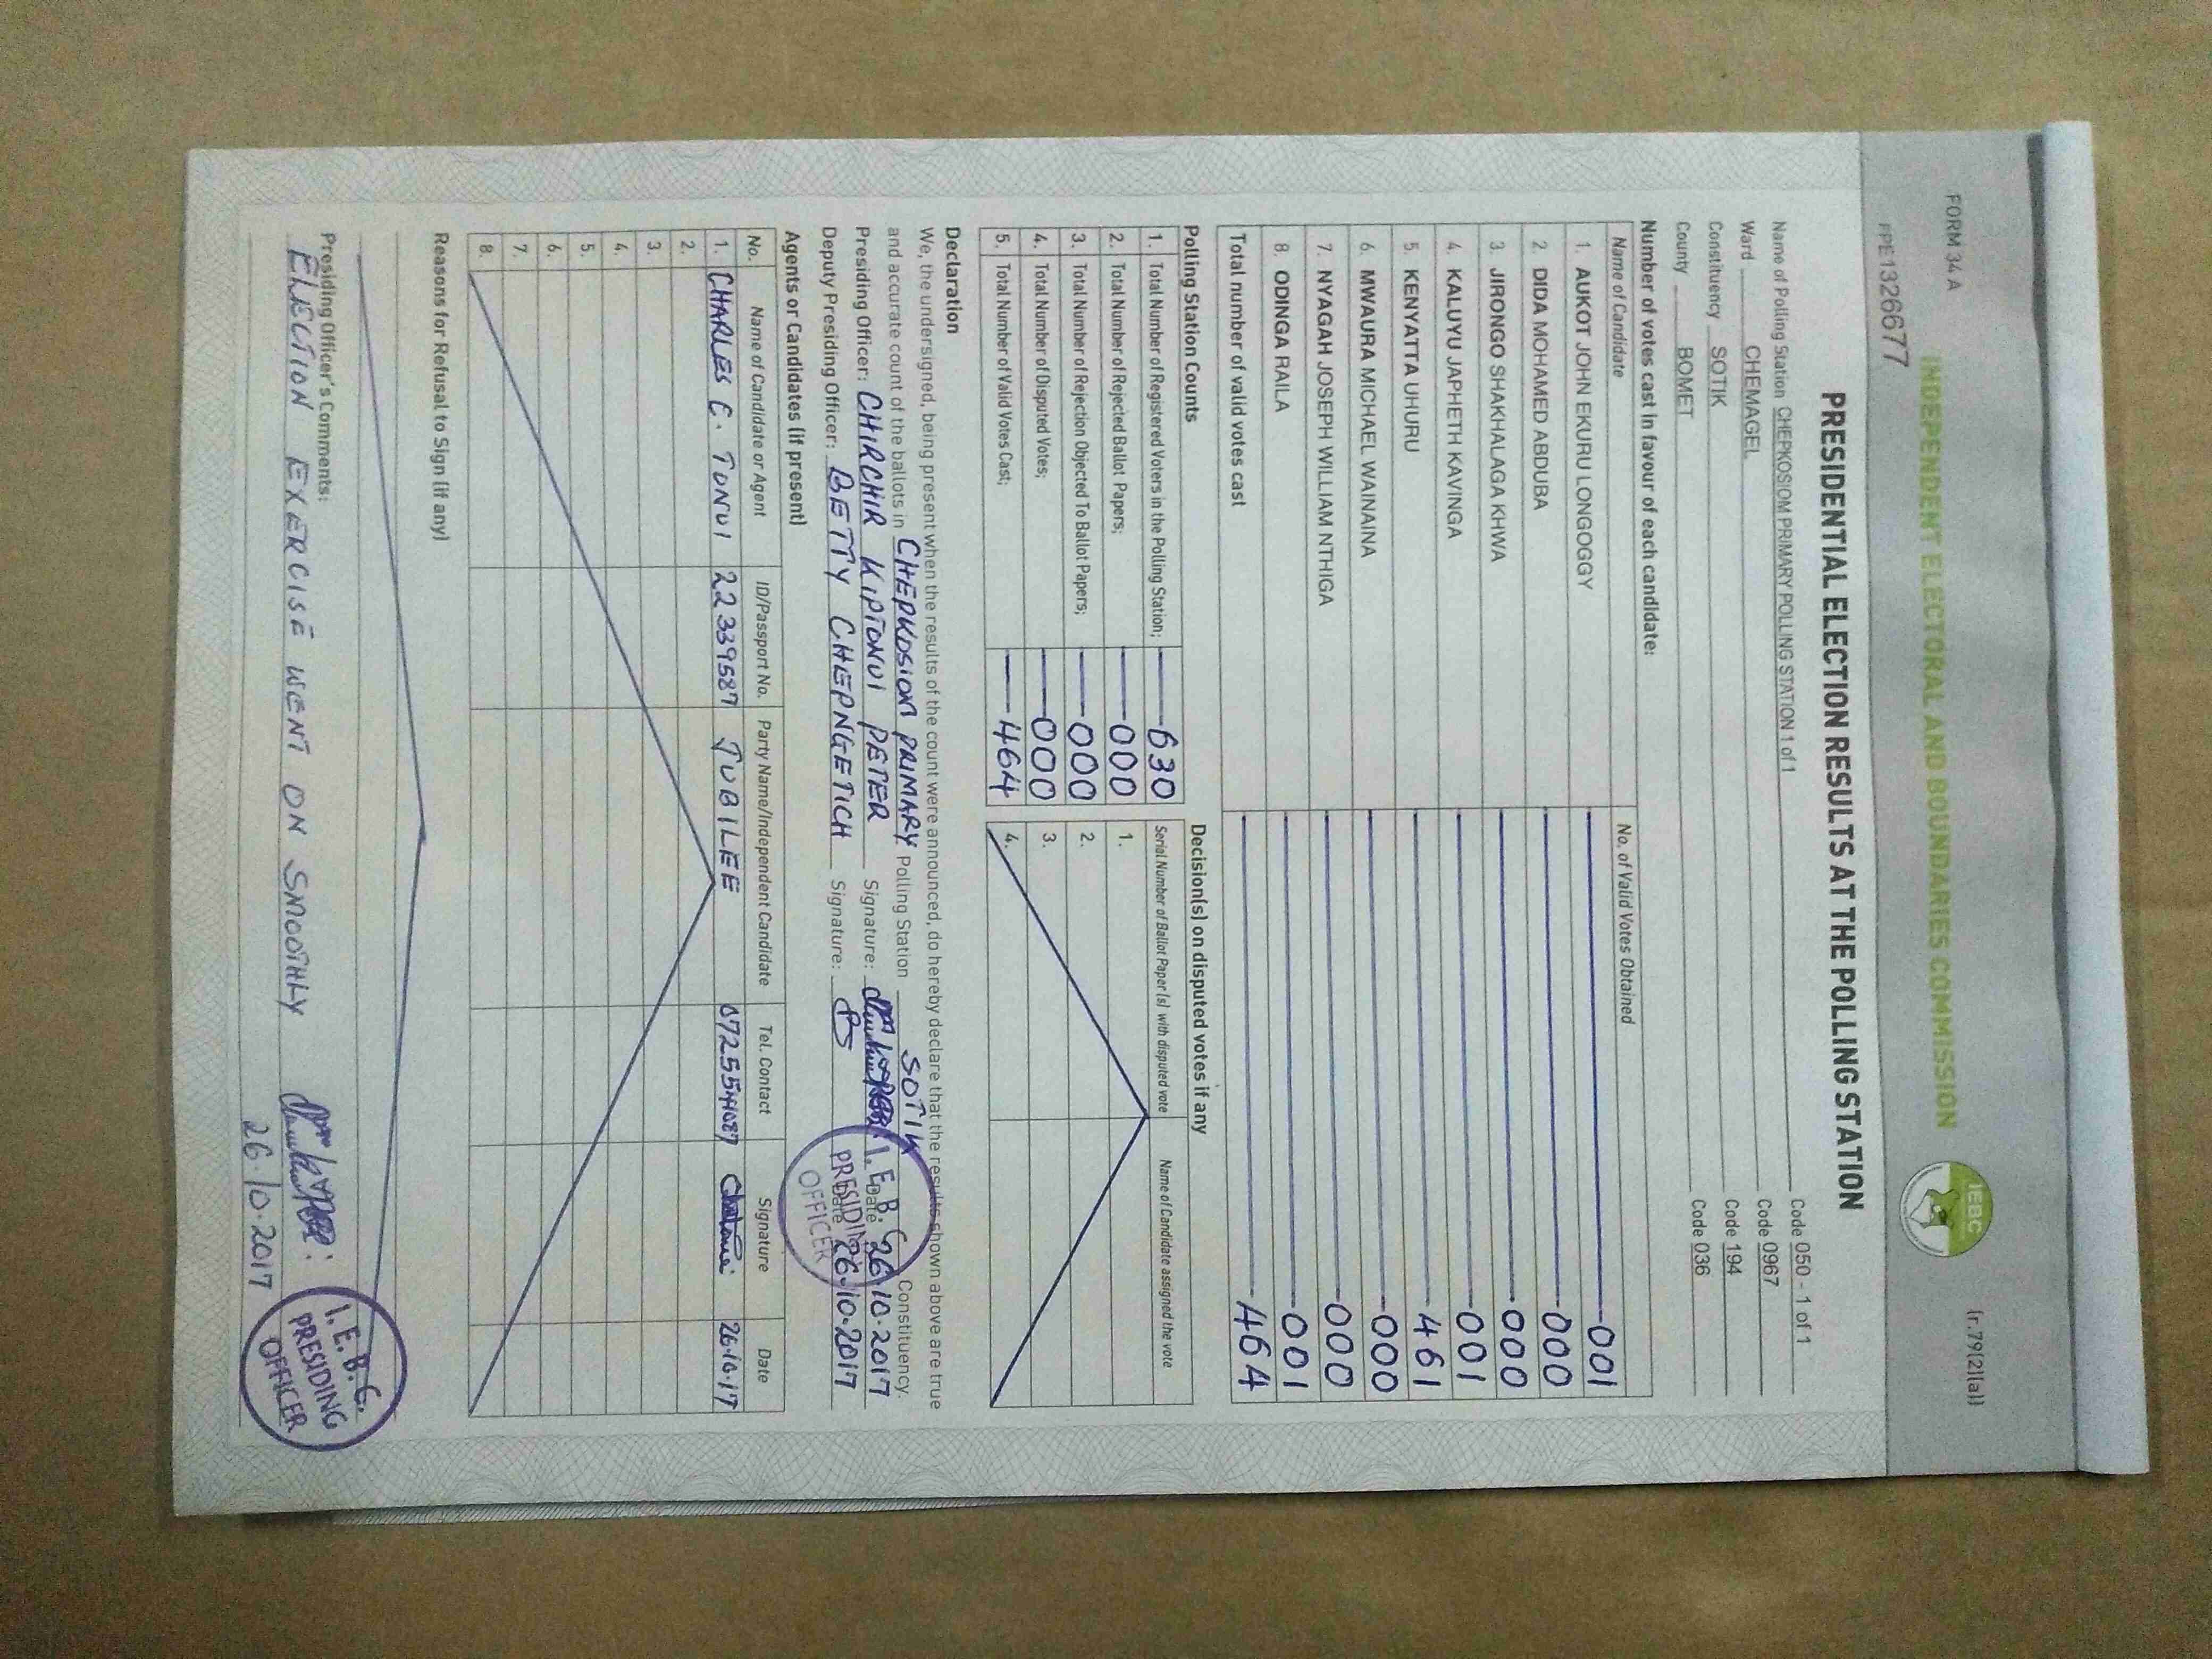 FORM 34 A
(r.79(2)(a))
INDEPENDENT ELECTORAL AND BOUNDARIES COMMISSION
IEBC
FPE1326677
PRESIDENTIAL ELECTION RESULTS AT THE POLLING STATION
Name of Polling Station CHEPKOSIOM PRIMARY POLLING STATION 1 of 1 Code 050 - 1 of 1
Ward CHEMAGEL Code 0967
Constituency SOTIK Code 194
County BOMET Code 036
Number of votes cast in favour of each candidate:
Name of Candidate No. of Valid Votes Obtained
1. AUKOT JOHN EKURU LONGOGGY 001
2. DIDA MOHAMED ABDUBA 000
3. JIRONGO SHAKHALAGA KHWA 000
4. KALUYU JAPHETH KAVINGA 001
5. KENYATTA UHURU 461
6. MWAURA MICHAEL WAINAINA 000
7. NYAGAH JOSEPH WILLIAM NTHIGA 000
8. ODINGA RAILA 001
Total number of valid votes cast 464
Polling Station Counts
1. Total Number of Registered Voters in the Polling Station; 630
2. Total Number of Rejected Ballot Papers; 000
3. Total Number of Rejection Objected To Ballot Papers; 000
4. Total Number of Disputed Votes; 000
5. Total Number of Valid Votes Cast; 464
Decision(s) on disputed votes if any
Serial Number of Ballot Paper (s) with disputed vote Name of Candidate assigned the vote
1.
2.
3.
4.
Declaration
We, the undersigned, being present when the results of the count were announced, do hereby declare that the results shown above are true
and accurate count of the ballots in CHEPKOSIOM PRIMARY Polling Station SOTIK Constituency.
Presiding Officer: CHIRCHIR KIPTONUI PETER Signature: Date 26.10.2017
Deputy Presiding Officer: BETTY CHEPNGETICH Signature: Date 26.10.2017
I. E. B. C.
PRESIDING
OFFICER
Agents or Candidates (if present)
No. Name of Candidate or Agent ID/Passport No. Party Name/Independent Candidate Tel. Contact Signature Date
1. CHARLES C. TONUI 22339587 JUBILEE 0725544087 26.10.17
2.
3.
4.
5.
6.
7.
8.
Reasons for Refusal to Sign (if any)
Presiding Officer's Comments:
ELECTION EXERCISE WENT ON SMOOTHLY
26.10.2017
I. E. B. C.
PRESIDING
OFFICER